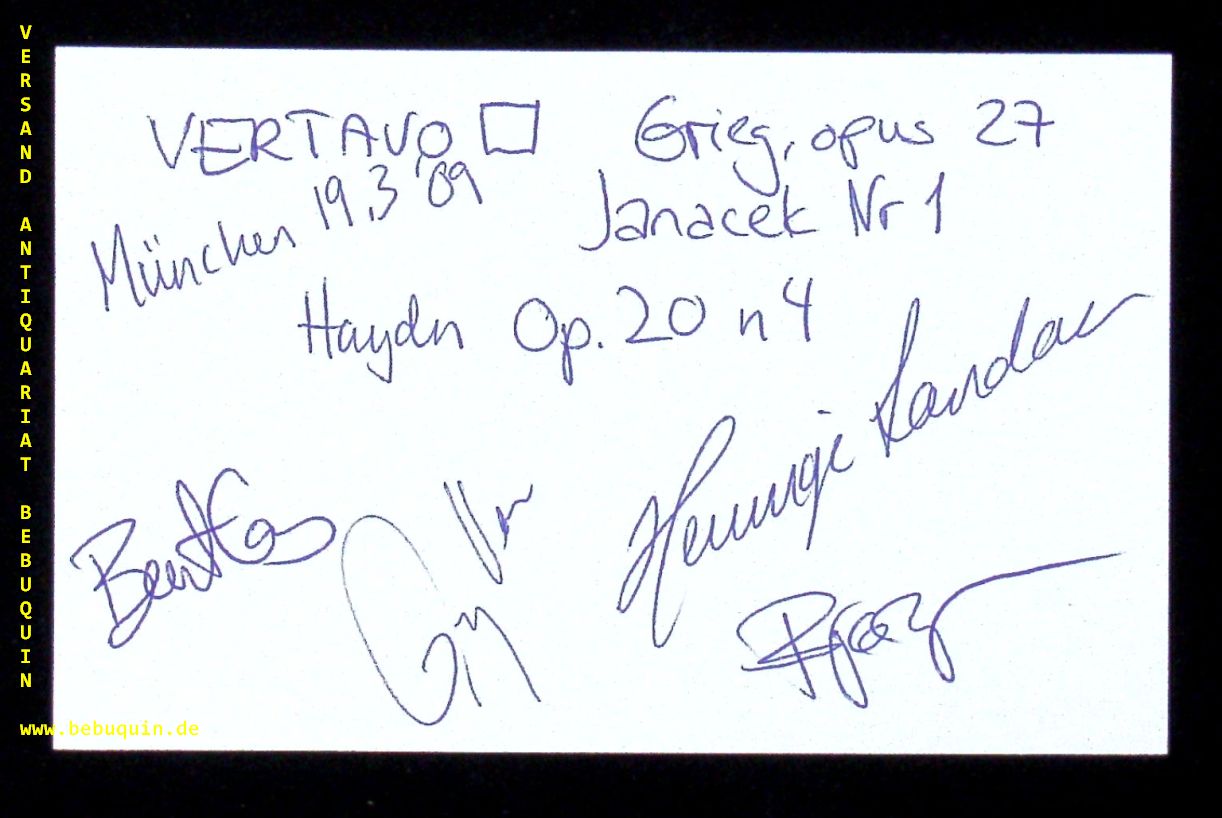 VERSAND ANTIQUARIAT BEBUQUIN
VERTAVO
München 19.3 '09
Grieg, opus 27
Janacek Nr 1
Haydn Op. 20 n 4
Henninge Landaas
www.bebuquin.de